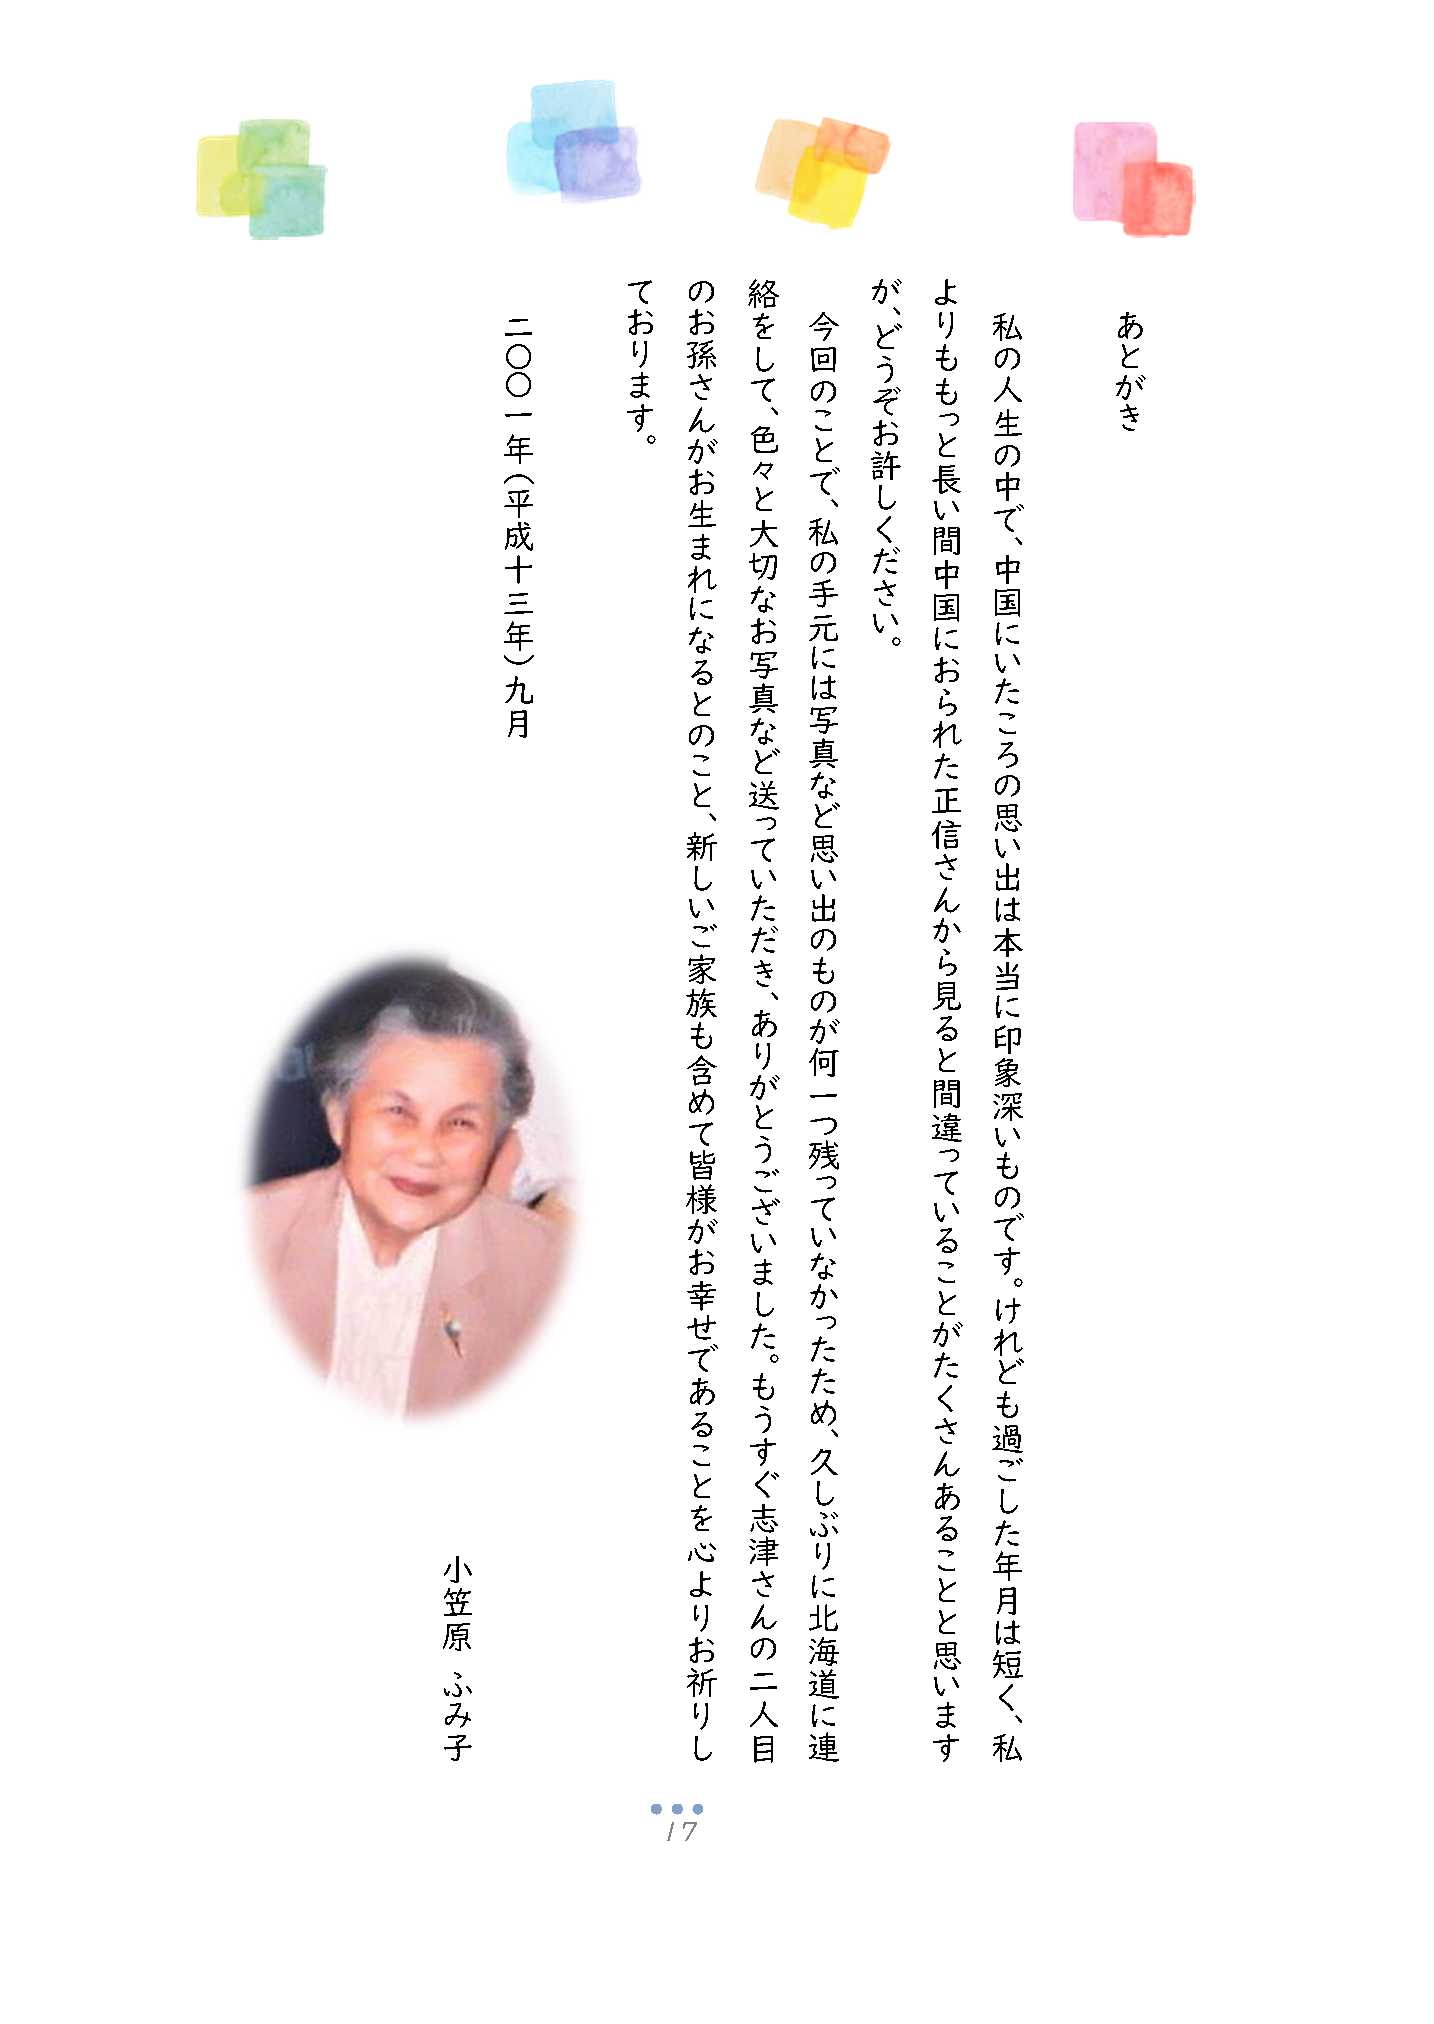 あとがき
私の人生の中で、中国にいたころの思い出は本当に印象深いものです。けれども過ごした年月は短く、私
よりももっと長い間中国におられた正信さんから見ると間違っていることがたくさんあることと思います
が、どうぞお許しください。
今回のことで、私の手元には写真など思い出のものが何一つ残っていなかったため、久しぶりに北海道に連
絡をして、色々と大切なお写真など送っていただき、ありがとうございました。もうすぐ志津さんの二人目
のお孫さんがお生まれになるとのこと、新しいご家族も含めて皆様がお幸せであることを心よりお祈りし
ております。
二〇〇一年（平成十三年）九月
小笠原 ふみ子
17